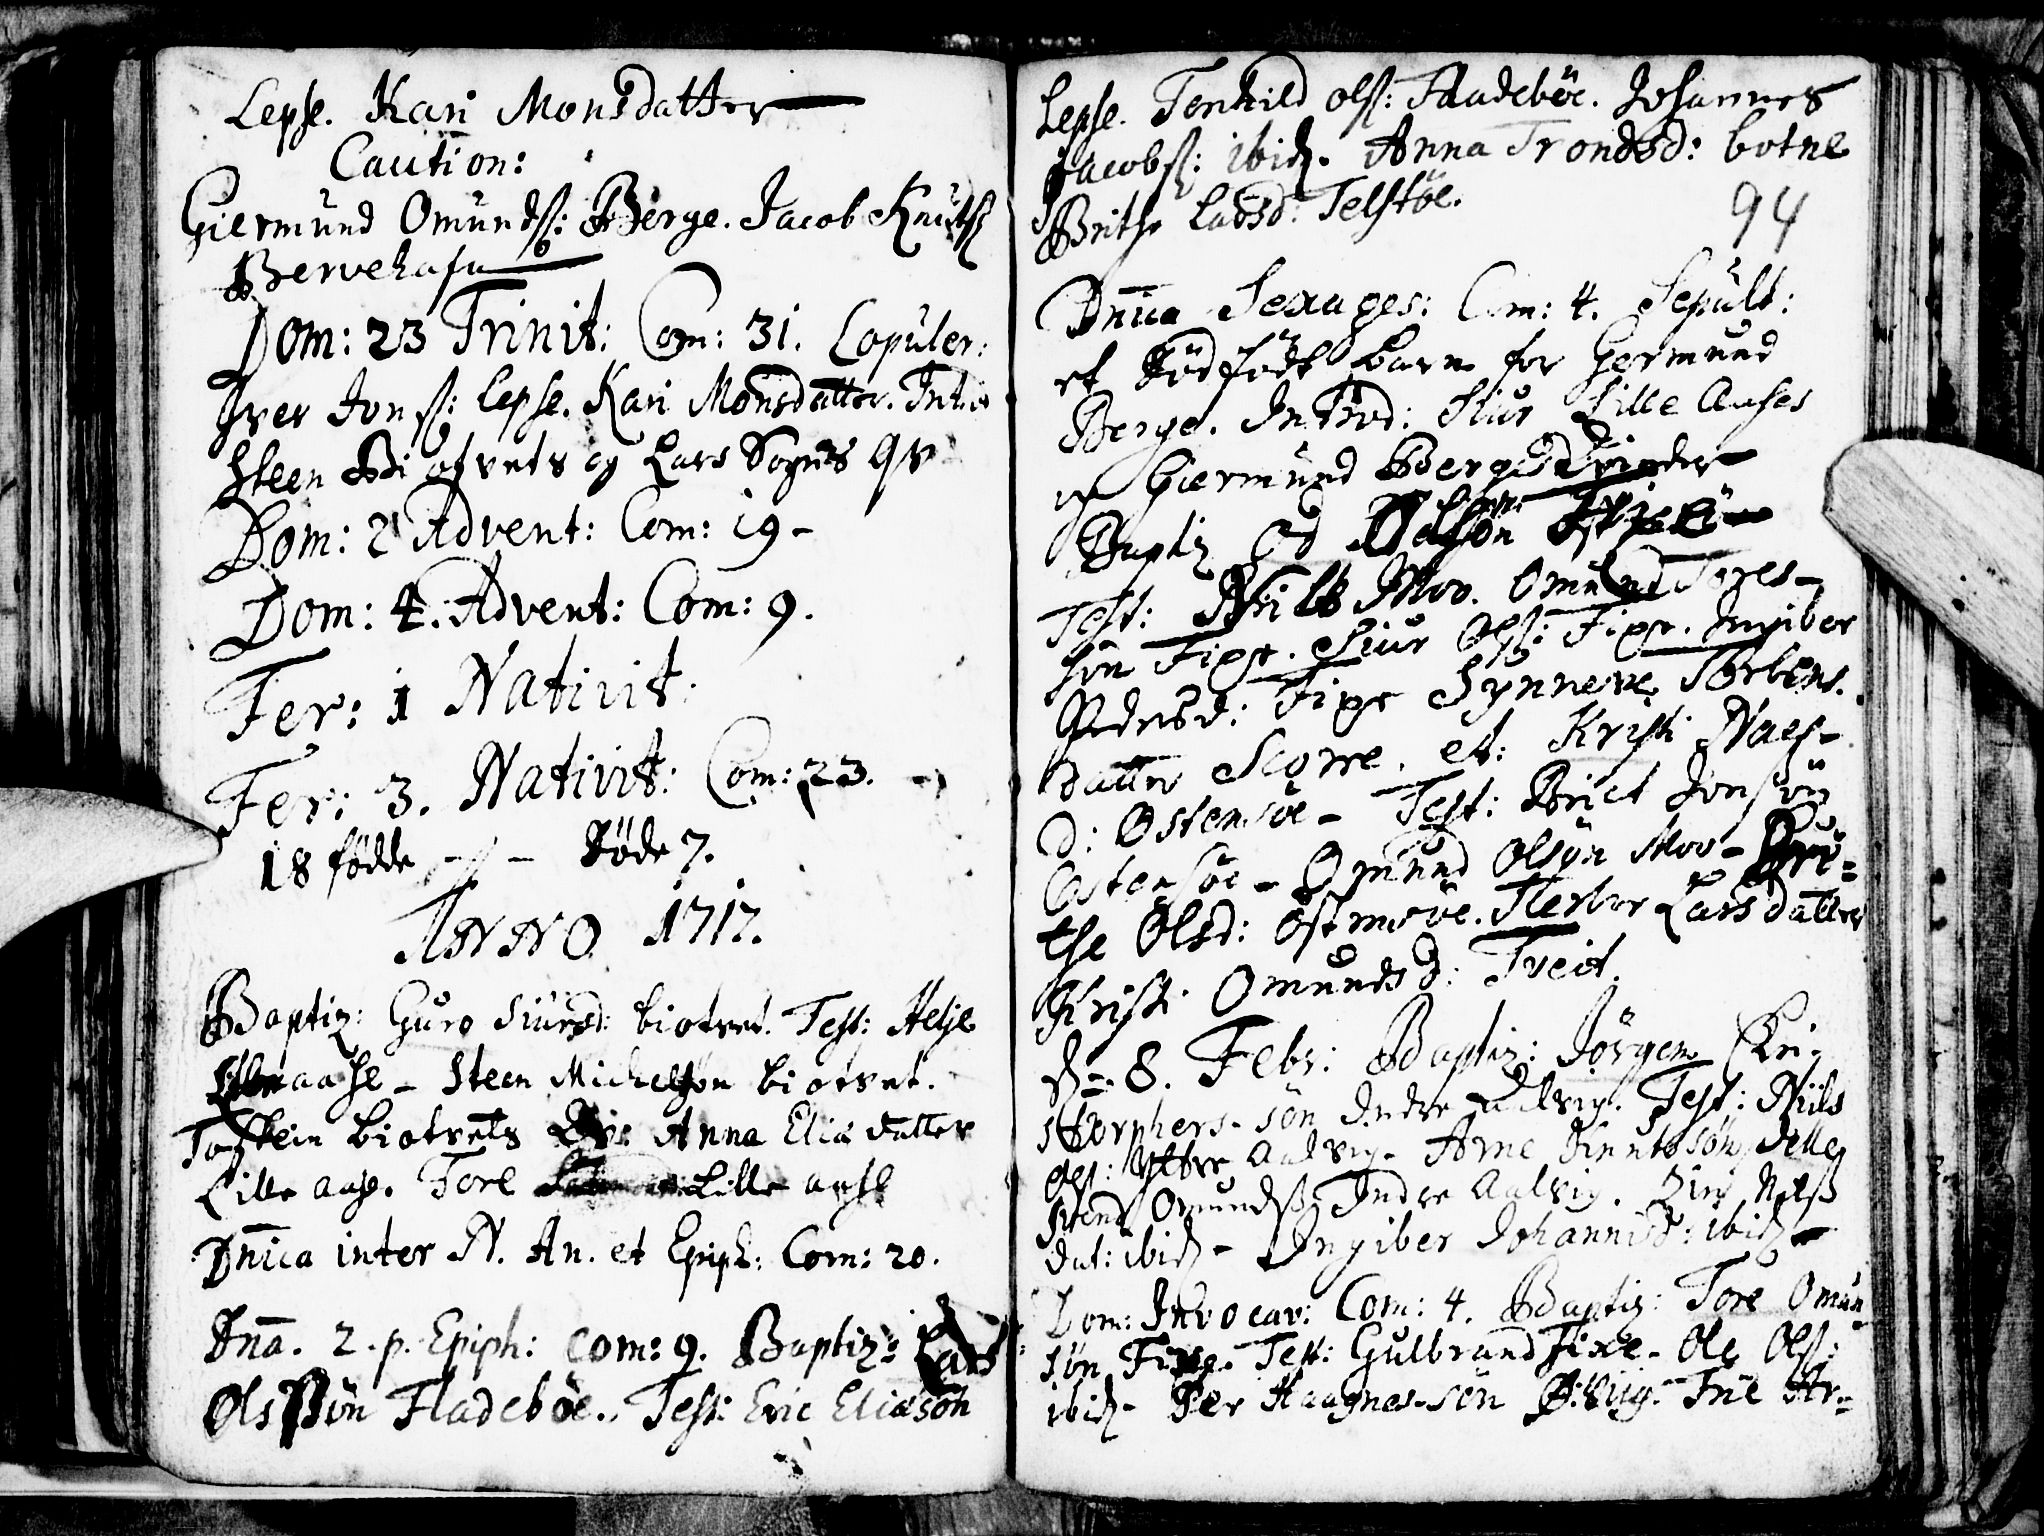 Lepse. Kari Monsdatter
Caution:
Giermund Omundsß: Berge. Jacob Knutsß
Bervehafn
Dom: 23 Trinit: Com: 31. Copuler:
Iver Jonß: Lepse. Kari Monsdatter. Intro
Steen Biotvets og Lars Sognes qv
Dom: 2 Advent: Com: 19 -
Dom: 4. Advent: Com: 9.
Fer: 1 Nativit:
Fer: 3. Nativit: Com: 23.
18 födde - Döde 7.
ANNO 1717.
Baptiz: Guro Siursd: biotvet. Test: Helje
aase - Steen Michelsön biotvet.
Tostein biotvets Anna Eliædatter
Lille aase. Tore Lille aase
Dnica inter N. An. et Epiph: Com: 20.
Dnā. 2. p. Epiph: Com: 9. Baptiz: Lars
Olssön Fladeböe. Test: Eric Eliæsön
Lepse. Torkild olß: Fladeböe. Johannes
Jacobß: ibid. Anna Trondsd: botne
Brithe Larsd: Telstöe.
94
Dnica Sexages: Com: 4. Sepult:
et Dödfödt barn for Germund
Berge. Introd: Siur Lille Aases
og Giermund Berges Qvinder
Baptiz Od
Test: Niels Moo. Omund Tores-
sön Fixe. Siur Olß: Fixe. Ingiber
Pedersd: Fixe Synneve Torbens-
datter Scorre. et: Kristi Naes-
d: Ostensöe - Test: Brict Jonsön
Ostensöe - Omund Olsön Moo - Bri-
the Olsd: Ostensöe. Herbor Larsdatter
Kristi Omundsd: Tveit.
d. 8. Febr: Baptiz: Jörgen Chri-
stophers-sön Indre Aalvig. Test: Niils
Olß: Yttre Aalvig. Arne Knutssön
Omundß Indre Aalvig. Nilß
dat: ibid - Ingiber Johannisd: ibid -
Dom: Invocav: Com: 4. Baptiz: Tore Omun-
sön Fixe. Test: Gulbrand Fixe - Ole Olß:
ibid - Per Haagnes-sön Ar-